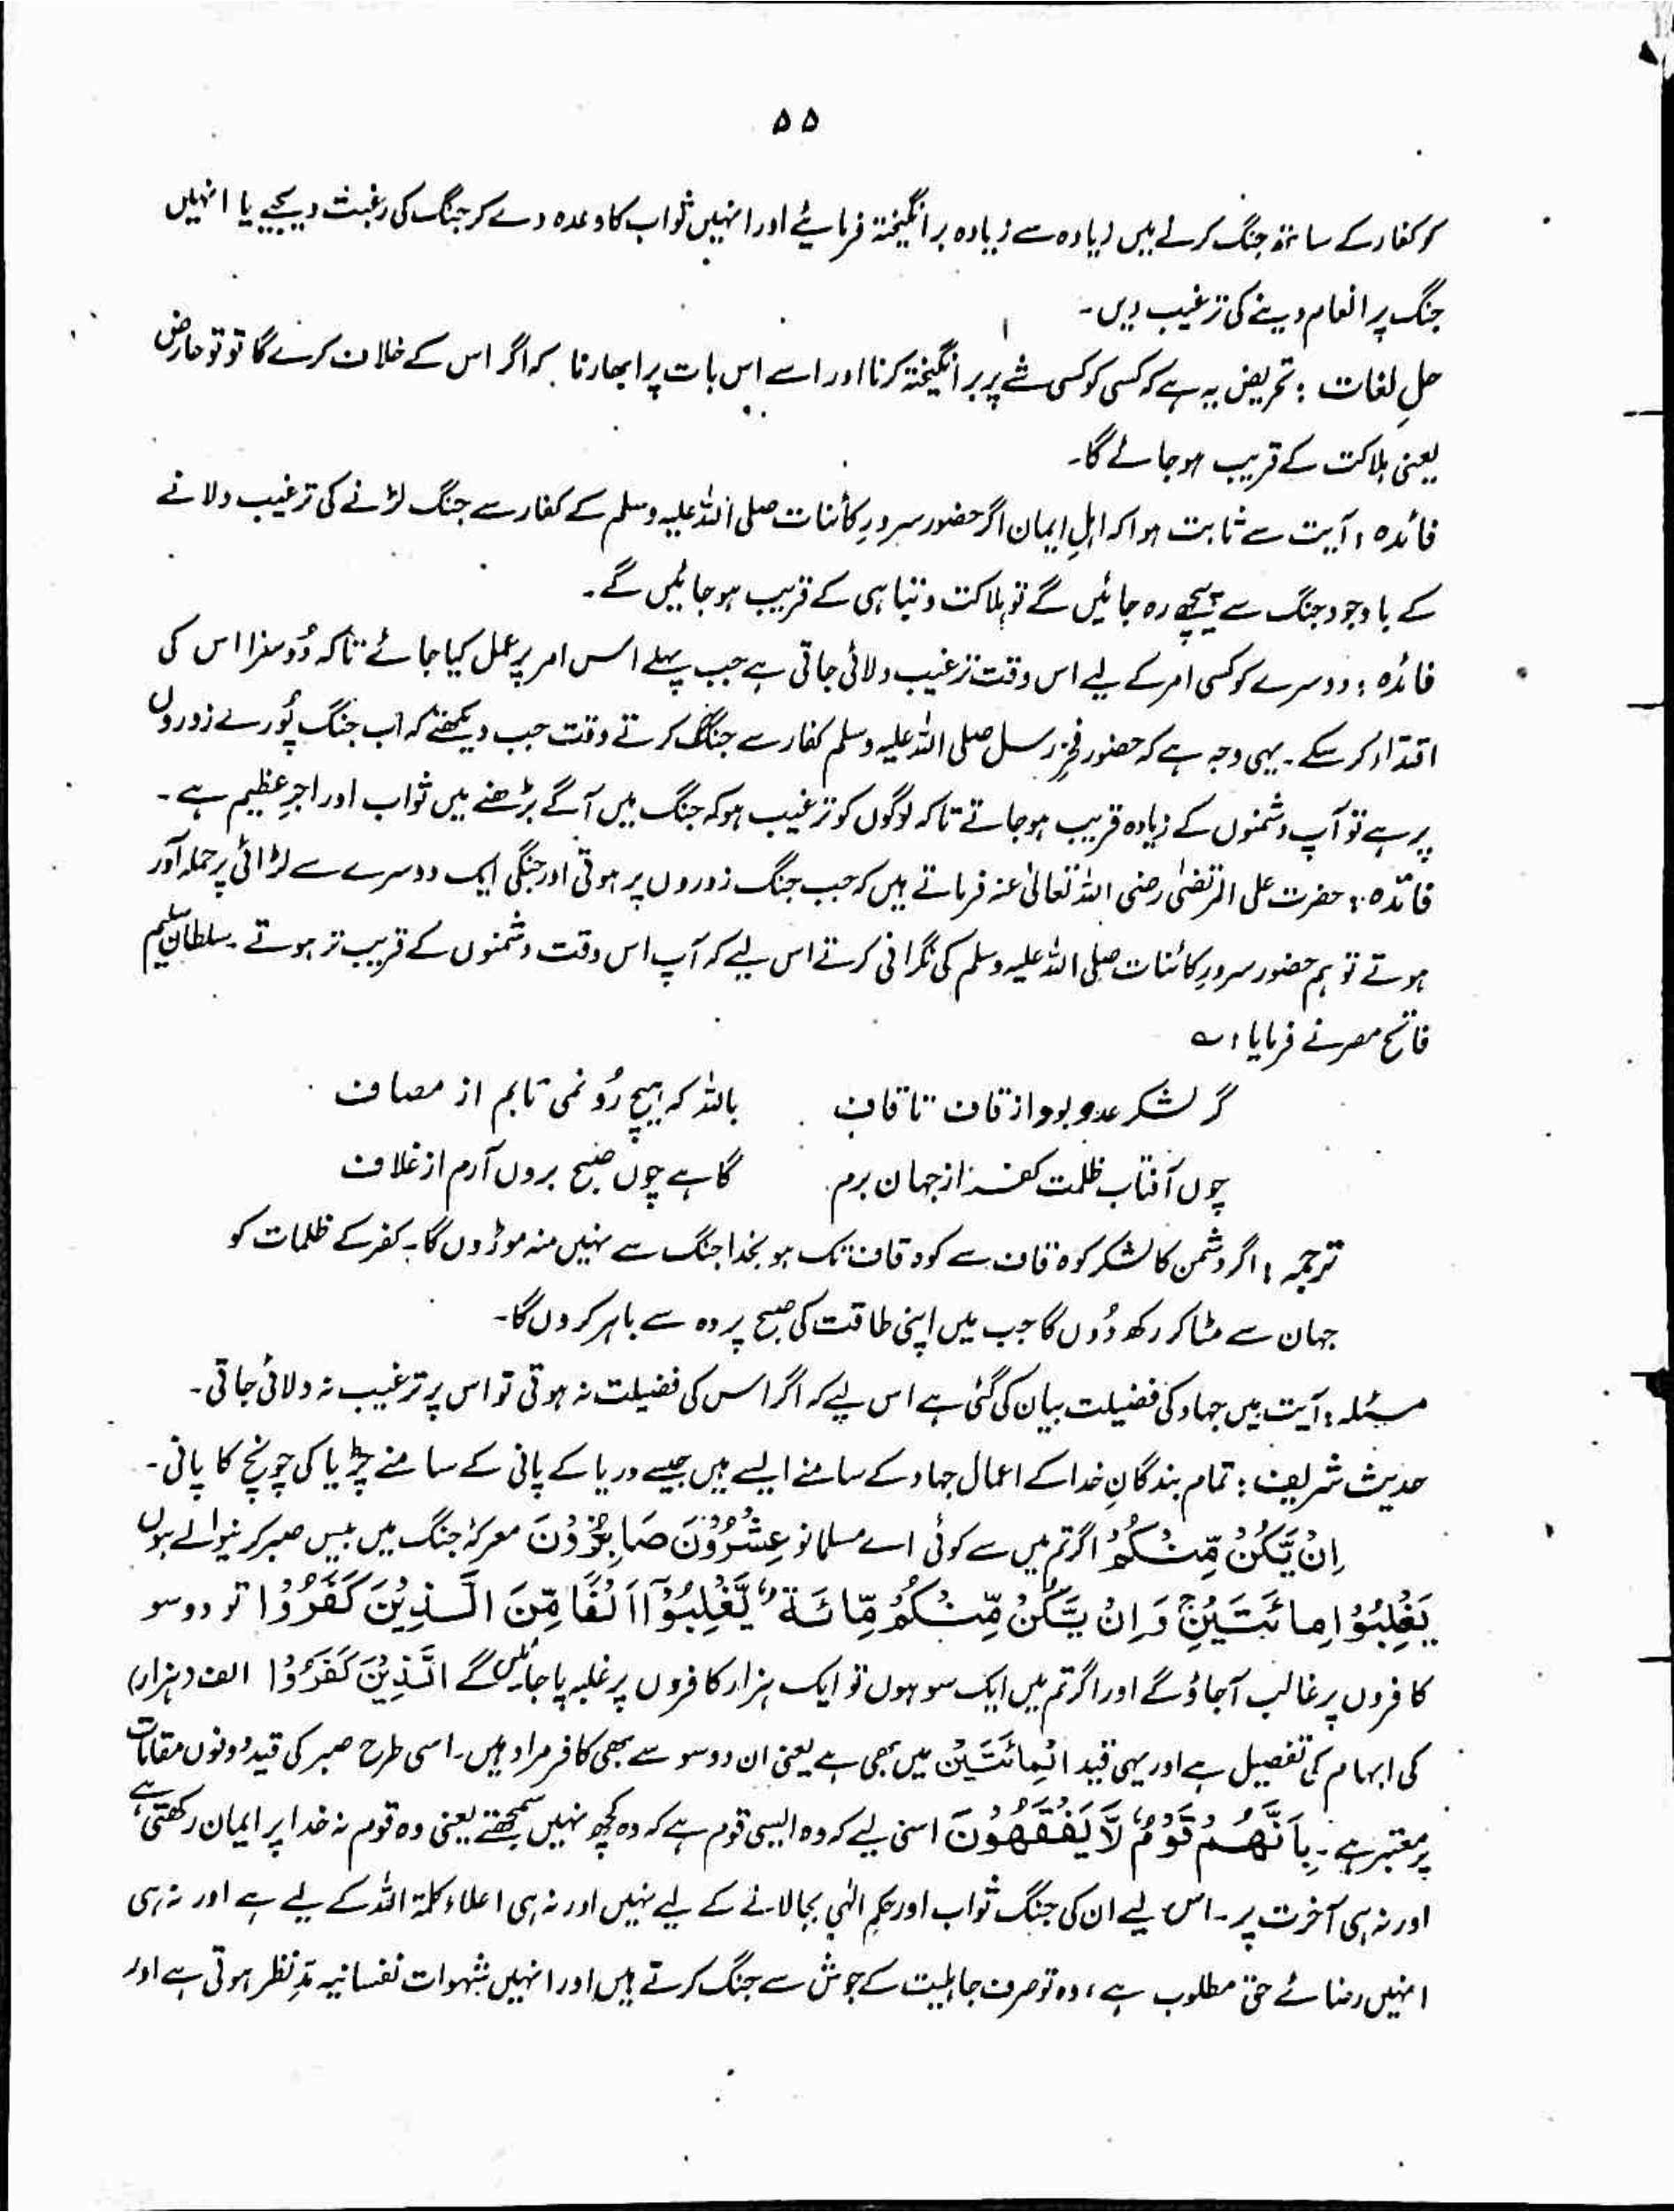 ۵۵
کو کفار کے ساتھ جنگ کرنے میں زیادہ سے زیادہ برانگیختہ فرمائیے اور انہیں ثواب کا وعدہ دے کر جنگ کی رغبت دیجیے یا انہیں
جنگ پر انعام دینے کی ترغیب دیں۔
حلِ لغات : تحریض یہ ہے کہ کسی کو کسی شے پر برانگیختہ کرنا اور اسے اس بات پر ابھارنا کہ اگر اس کے خلاف کرے گا تو تو حارض
یعنی ہلاکت کے قریب ہو جائے گا۔
فائدہ : آیت سے ثابت ہوا کہ اہلِ ایمان اگر حضور سرورِ کائنات صلی اللہ علیہ وسلم کے کفار سے جنگ لڑنے کی ترغیب دلانے
کے باوجود جنگ سے پیچھے رہ جائیں گے تو ہلاکت و تباہی کے قریب ہو جائیں گے۔
فائدہ : دوسرے کو کسی امر کے لیے اس وقت ترغیب دلائی جاتی ہے جب پہلے اس امر پر عمل کیا جائے تاکہ دُوسرا اس کی
اقتداء کر سکے۔ یہی وجہ ہے کہ حضور فخرِ رسل صلی اللہ علیہ وسلم کفار سے جنگ کرتے وقت جب دیکھتے کہ اب جنگ پُورے زوروں
پر ہے تو آپ دشمنوں کے زیادہ قریب ہو جاتے تاکہ لوگوں کو ترغیب ہو کہ جنگ میں آگے بڑھنے میں ثواب اور اجرِ عظیم ہے۔
فائدہ : حضرت علی المرتضیٰ رضی اللہ تعالیٰ عنہ فرماتے ہیں کہ جب جنگ زوروں پر ہوتی اور جنگی ایک دوسرے سے لڑائی پر حملہ آور
ہوتے تو ہم حضور سرورِ کائنات صلی اللہ علیہ وسلم کی نگرانی کرتے اس لیے کہ آپ اس وقت دشمنوں کے قریب تر ہوتے۔ سلطان سلیم
فاتح مصر نے فرمایا : ؎
گر لشکر عدو بود از قاف تا قاف باللہ کہ ہیچ رُو نمی تابم از مصاف
چوں آفتاب ظلمت کفر از جہان برم گاہے چوں صبح بروں آرم از غلاف
ترجمہ : اگر دشمن کا لشکر کوہ قاف سے کوہ قاف تک ہو بخدا جنگ سے نہیں منہ موڑوں گا۔ کفر کے ظلمات کو
جہان سے مٹا کر رکھ دُوں گا جب میں اپنی طاقت کی صبح پردہ سے باہر کروں گا۔
مسئلہ : آیت میں جہاد کی فضیلت بیان کی گئی ہے اس لیے کہ اگر اس کی فضیلت نہ ہوتی تو اس پر ترغیب نہ دلائی جاتی۔
حدیث شریف : تمام بندگانِ خدا کے اعمال جہاد کے سامنے ایسے ہیں جیسے دریا کے پانی کے سامنے چڑیا کی چونچ کا پانی۔
اِنْ یَّکُنْ مِّنْکُمْ اگر تم میں سے کوئی اے مسلمانو عِشْرُوْنَ صَابِرُوْنَ معرکۂ جنگ میں بیس صبر کرنیوالے ہوں
یَغْلِبُوْا مِائَتَیْنِ ۚ وَ اِنْ یَّکُنْ مِّنْکُمْ مِّائَۃٌ یَّغْلِبُوْٓا اَلْفًا مِّنَ الَّذِیْنَ کَفَرُوْا تو دو سو
کافروں پر غالب آجاؤ گے اور اگر تم میں ایک سو ہوں تو ایک ہزار کافروں پر غلبہ پا جائیں گے الَّذِیْنَ کَفَرُوْا الف (ہزار)
کی ابہام کی تفصیل ہے اور یہی قید اَلْمِائَتَیْنِ میں بھی ہے یعنی ان دو سو سے بھی کافر مراد ہیں۔ اسی طرح صبر کی قید دونوں مقامات
پر معتبر ہے۔ بِاَنَّھُمْ قَوْمٌ لَّا یَفْقَھُوْنَ اسی لیے کہ وہ ایسی قوم ہے کہ وہ کچھ نہیں سمجھتے یعنی وہ قوم نہ خدا پر ایمان رکھتی ہے
اور نہ ہی آخرت پر۔ اس لیے ان کی جنگ ثواب اور حکمِ الٰہی بجا لانے کے لیے نہیں اور نہ ہی اعلاء کلمۃ اللہ کے لیے ہے اور نہ ہی
انہیں رضائے حق مطلوب ہے، وہ تو صرف جاہلیت کے جوش سے جنگ کرتے ہیں اور انہیں شہوات نفسانیہ مدِّنظر ہوتی ہے اور